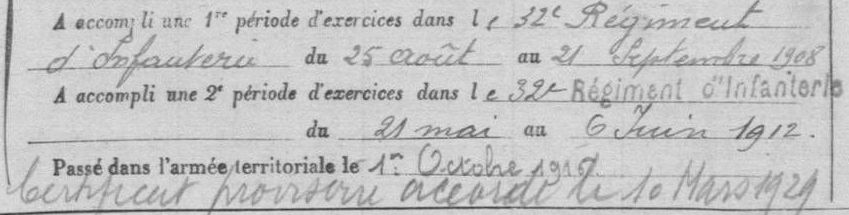 A accompli une 1re période d'exercices dans le 32e Régiment
d'Infanterie du 25 août au 21 Septembre 1908
A accompli une 2e période d'exercices dans le 32e Régiment d'Infanterie
du 21 mai au 6 Juin 1912.
Passé dans l'armée territoriale le 1er Octobre
Certificat provisoire accordé le 10 Mars 1929